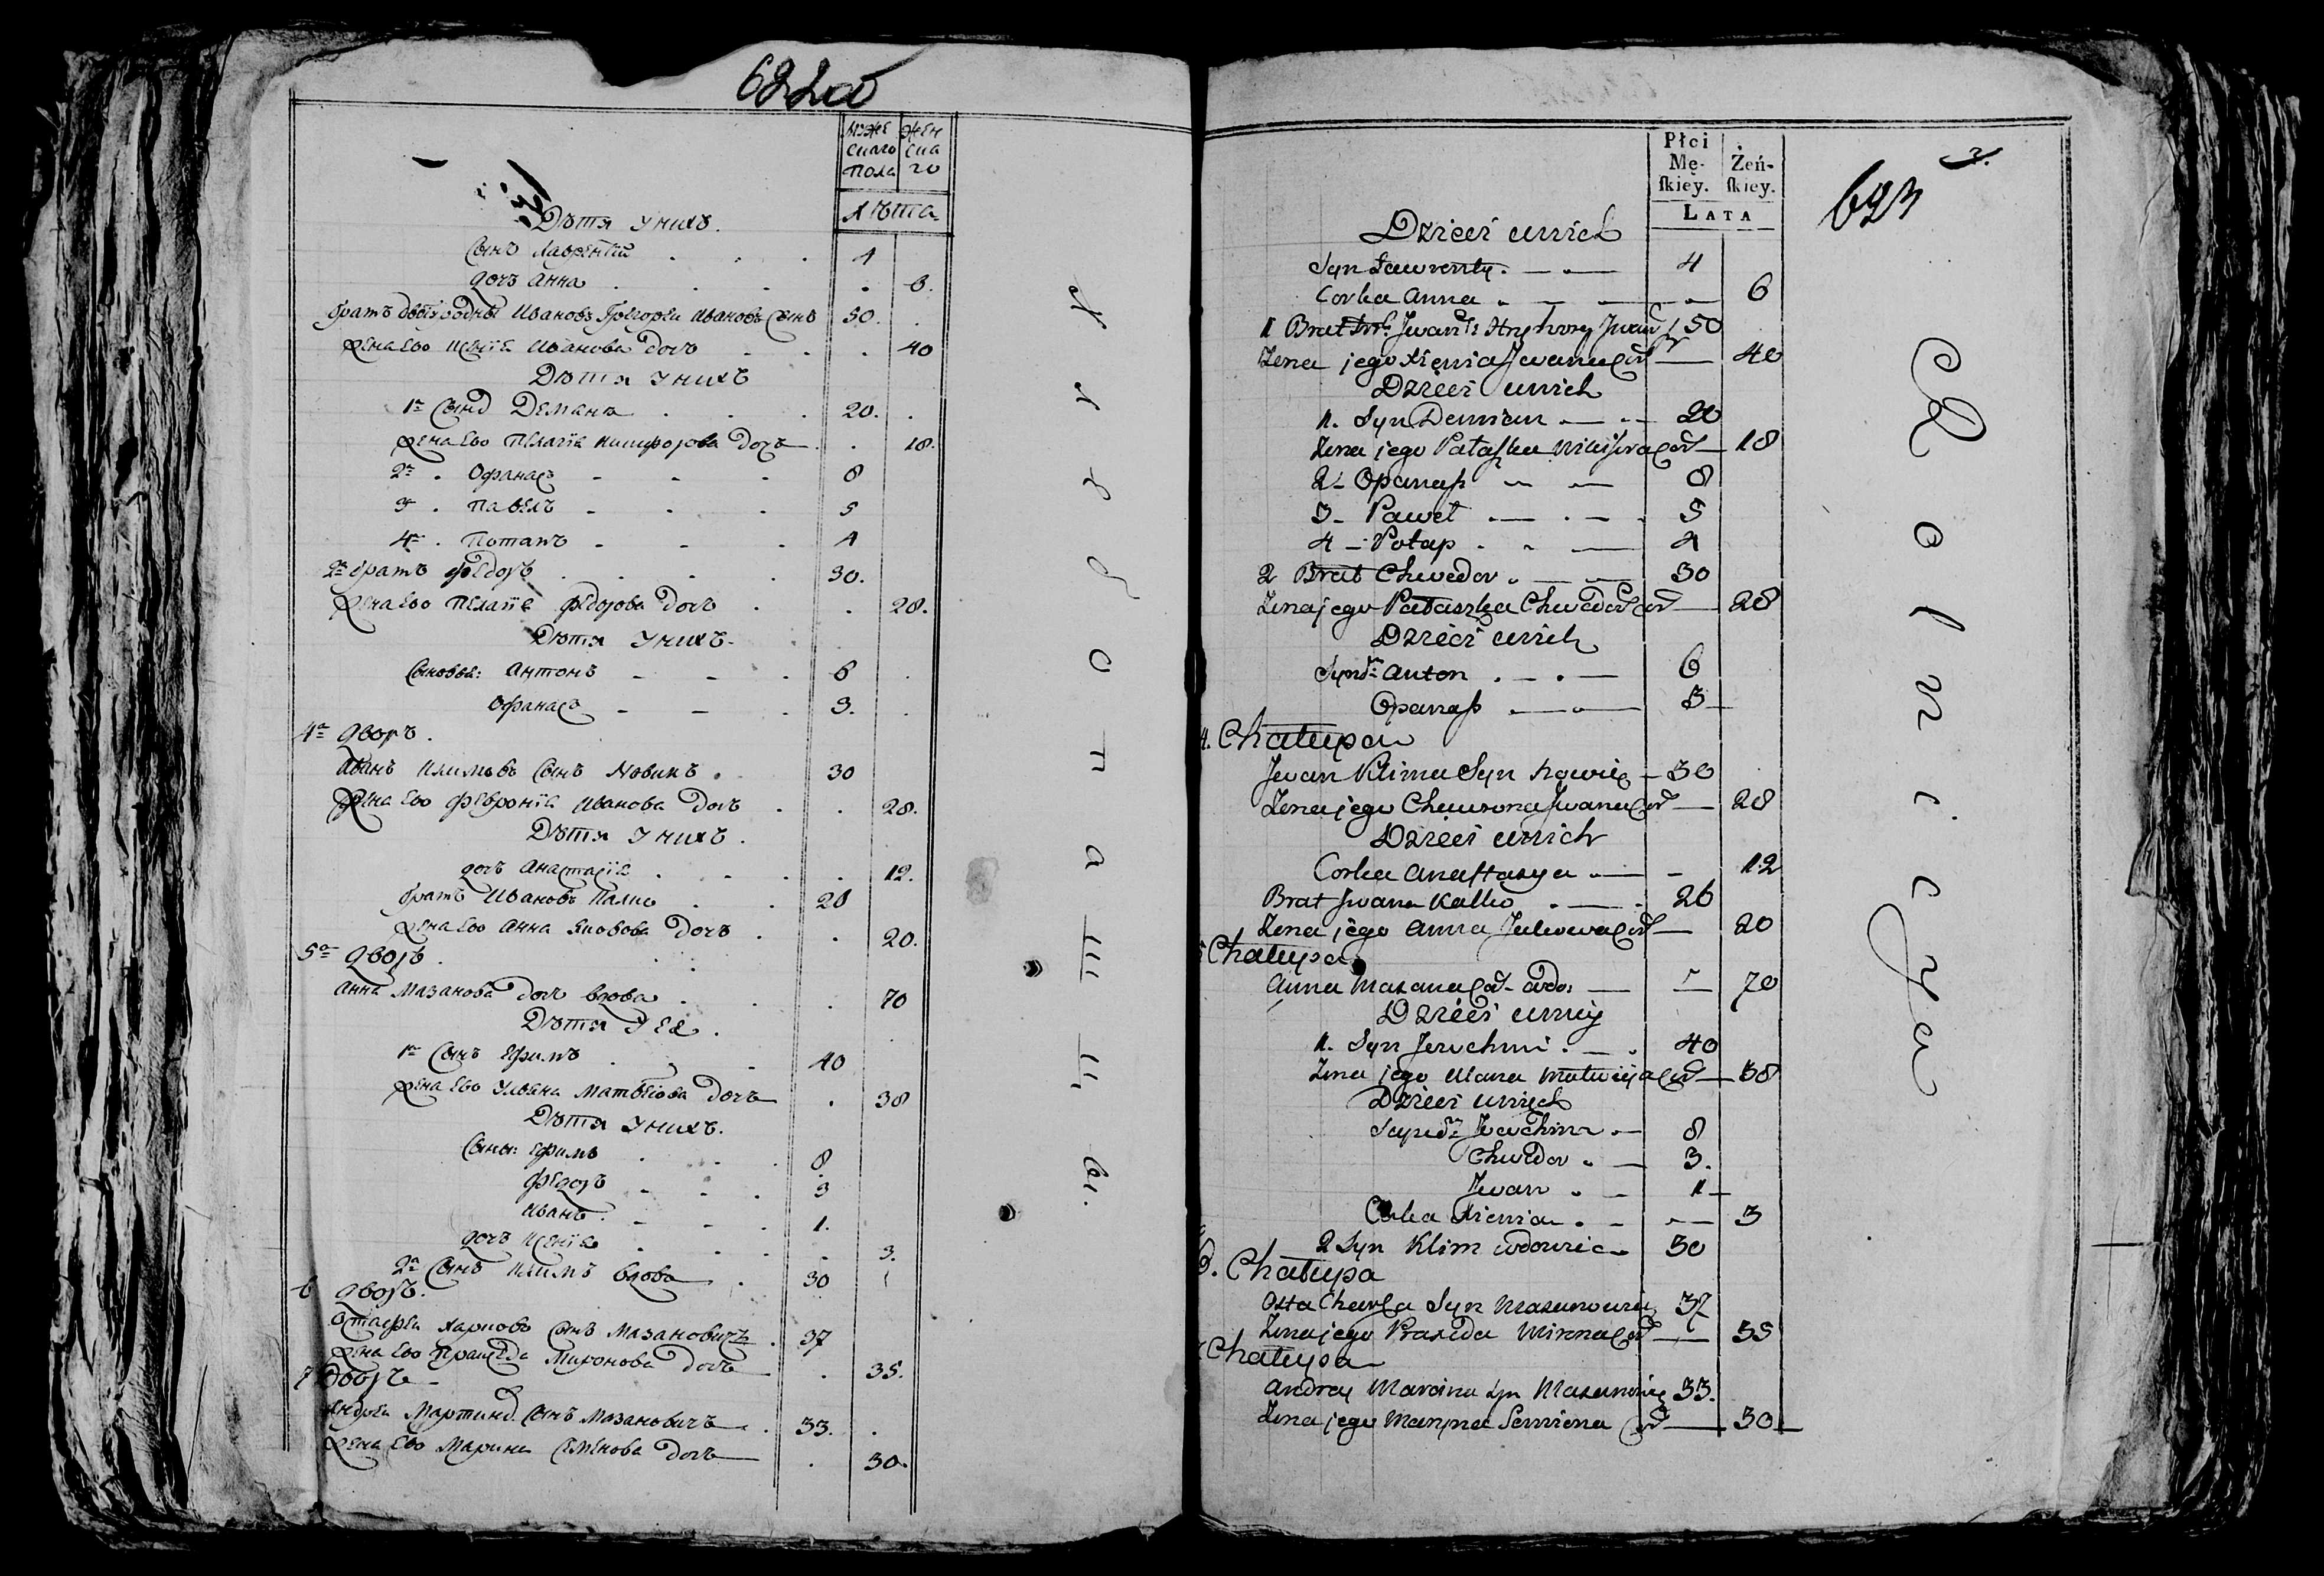 622об
Мƴже скаго пола
Жен ска го
лѣта
Дѣти у нихъ.
Сынъ Лаврентiй 4
дочь Анна 6.
братъ двоюродны Ивановъ Григореи Ивановъ Сынъ 50.
жена Ево Ксенiя Иванова дочь 40
Дѣти у нихъ
1й Сынъ Демянъ 20.
жена Ево Пелагiя Никифорова дочь 18.
2й Офанасъ 8
3й Павелъ 5
4й Потапъ 4
2й братъ Федоръ 30.
жена Ево Пелагiя Федорова дочь 28.
Дѣти у нихъ.
Сыновья: Антонъ 6
Офанасъ 3.
4й дворъ.
Иванъ Климовъ Сынъ Новикъ 30
жена Ево Февронiя Иванова дочь 28.
Дѣти у нихъ.
дочь Анастасiя 12.
братъ Ивановъ Калко 26
жена Ево Анна Яковова дочь 20.
5й дворъ.
Анна Мазанова дочь вдова 70
Дѣти у Ея.
1й Сынъ Ефимъ 40
жена Ево Ульяна Матвеiова дочь 38
Дѣти у нихъ.
Сыны: Ефимъ 8
Федоръ 3
Иванъ 1.
дочь Ксенiя 3.
2й Сынъ Климъ вдова 30
6 дворъ.
Остафеи Карповъ Сынъ Мазановичъ 37
жена Ево Праксѣда Миронова дочь 35.
7 дворъ
Андреи Мартина Сынъ Мазановичъ 33.
жена Ево Марина Семенова дочь 30.
Płci Mę- ſkiey.
Żeń- ſkiey.
Lata
623
Dzieci u nich
Syn Ławrenty 4
Corka Anna 6
1 Brat Iwan Hryhory Iwana 50
Zona jego Xienia Iwana Cor 40
Dzieci u nich
1. Syn Demian 20
Zona jego Pałaszka Nikifora Cor 18
2 Opanaſ 8
3 Paweł 5
4 Potap 4
2 Brat Chwedor 30
Zona jego Pałaszka Chwedor Cor 28
Dzieci u nich
Synow Anton 6
Opanaſ 3
4. Chałupa
Iwan Klima Syn Nowik 30
Zona jego Chewrona Iwana Cor 28
Dzieci u nich
Corka Anaſtazya 12
Brat Iwana Kalko 26
Zona jego Anna Jakowa Cor 20
5 Chałupa
Anna Mazana Cor wdo: 70
Dzieci u niey
1. Syn Jewchim 40
Zona jego Ulana Matwieja Cor 38
Dzieci u nich
Synow Jewchim 8
Chwedor 3.
Iwan 1
Corka Xienia 3
2 Syn Klim wdowiec 30
6. Chałupa
Osta Charka Syn Mazanowicz 37
Zona jego Praxeda Mirona Cor 35
Chałupa
Andrey Marcina Syn Mazanowicz 33.
Zona jego Maryna Semiena Cor 30